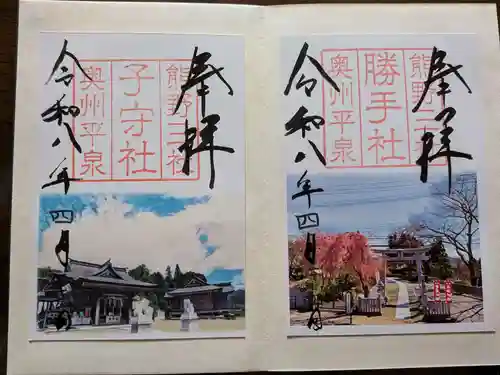 奉拝
熊野三社
子守社
奥州平泉
令和八年四月 日
奉拝
熊野三社
勝手社
奥州平泉
令和八年四月 日